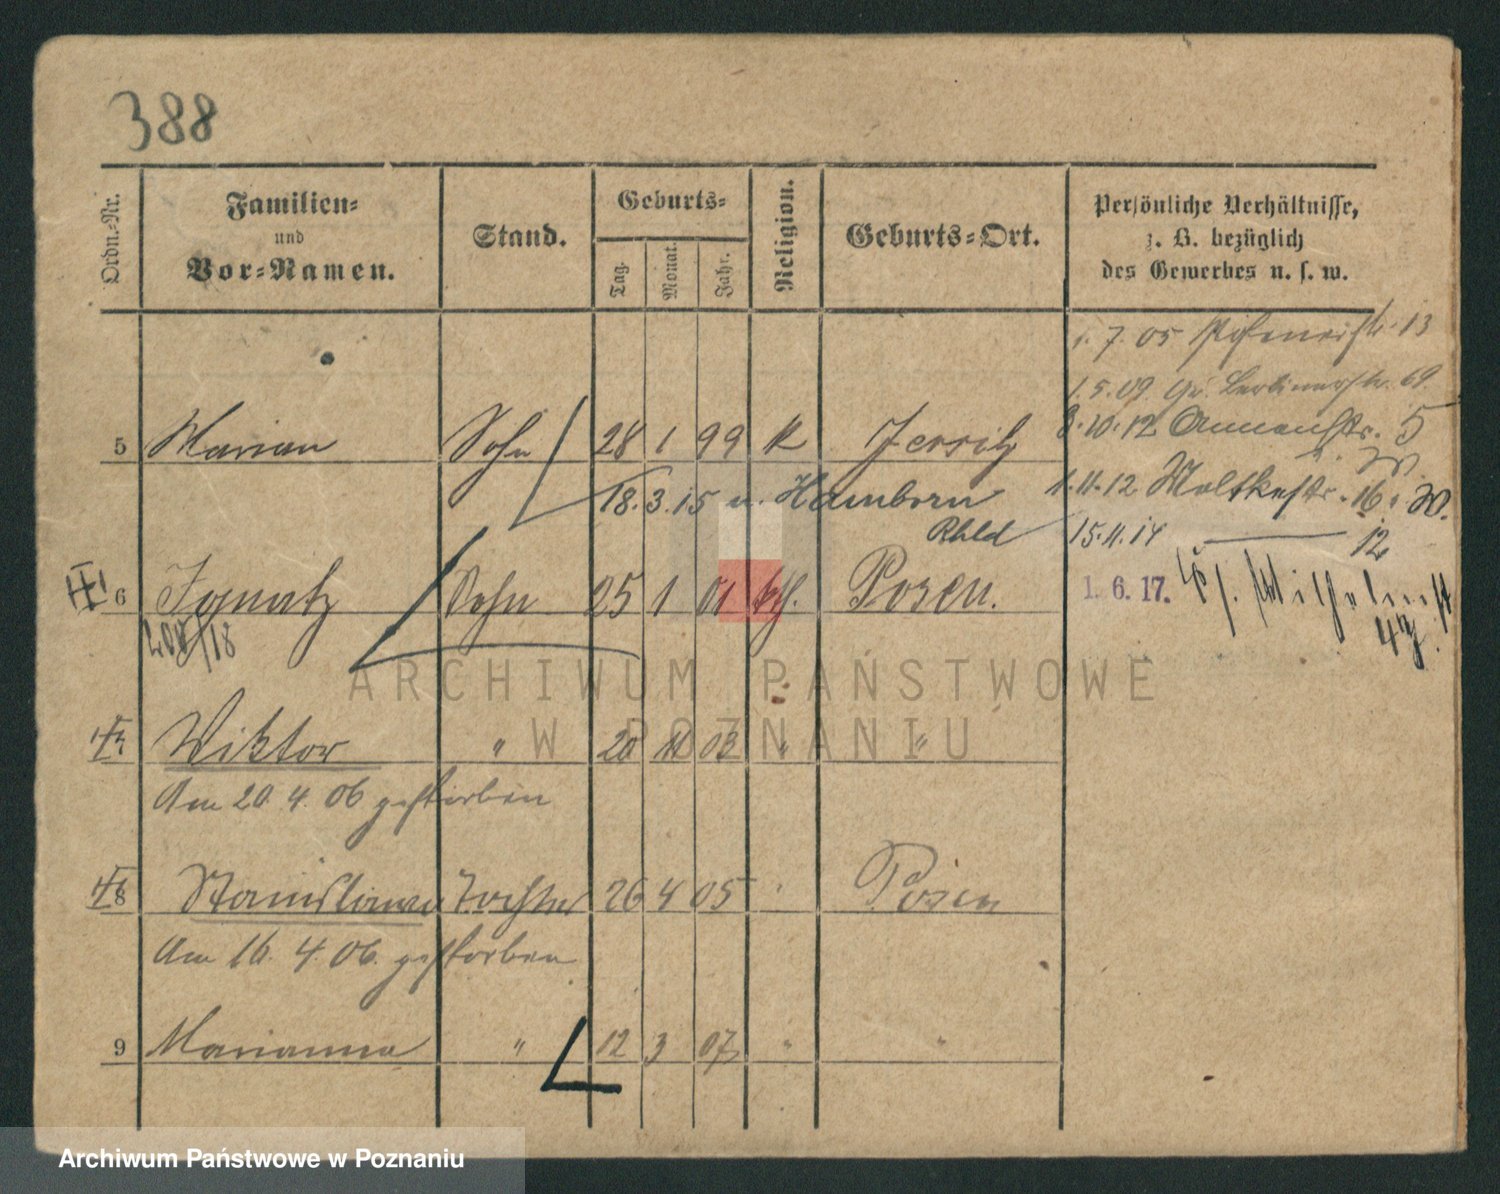 388
Ordn.-Nr.
Familien-
und
Vor-Namen.
Stand.
Geburts-
Tag.
Monat.
Jahr.
Religion.
Geburts-Ort.
Persönliche Verhältnisse,
z. B. bezüglich
des Gewerbes u. s. w.
1. 7. 05 13
1. 5. 09 Gr. Berlinerstr. 69.
3. 10. 12 Annenstr. 5
5 Marian Sohn 28 1 99 k Jersitz
18. 3. 15 n. Hamborn
Rhld
1. 11. 12 Moltkestr. 16
15. 11. 14 — 12
6 Ignatz Sohn 25 1 01 kth. Posen.
1. 6. 17.
7 Wiktor " 20 11 03 " "
Am 20. 4. 06 gestorben
8 Stanislawa Tochter 26 4 05 " Posen
Am 16. 4. 06. gestorben
9 Marianna " 12 3 07 " "
ARCHIWUM PAŃSTWOWE
W POZNANIU
Archiwum Państwowe w Poznaniu